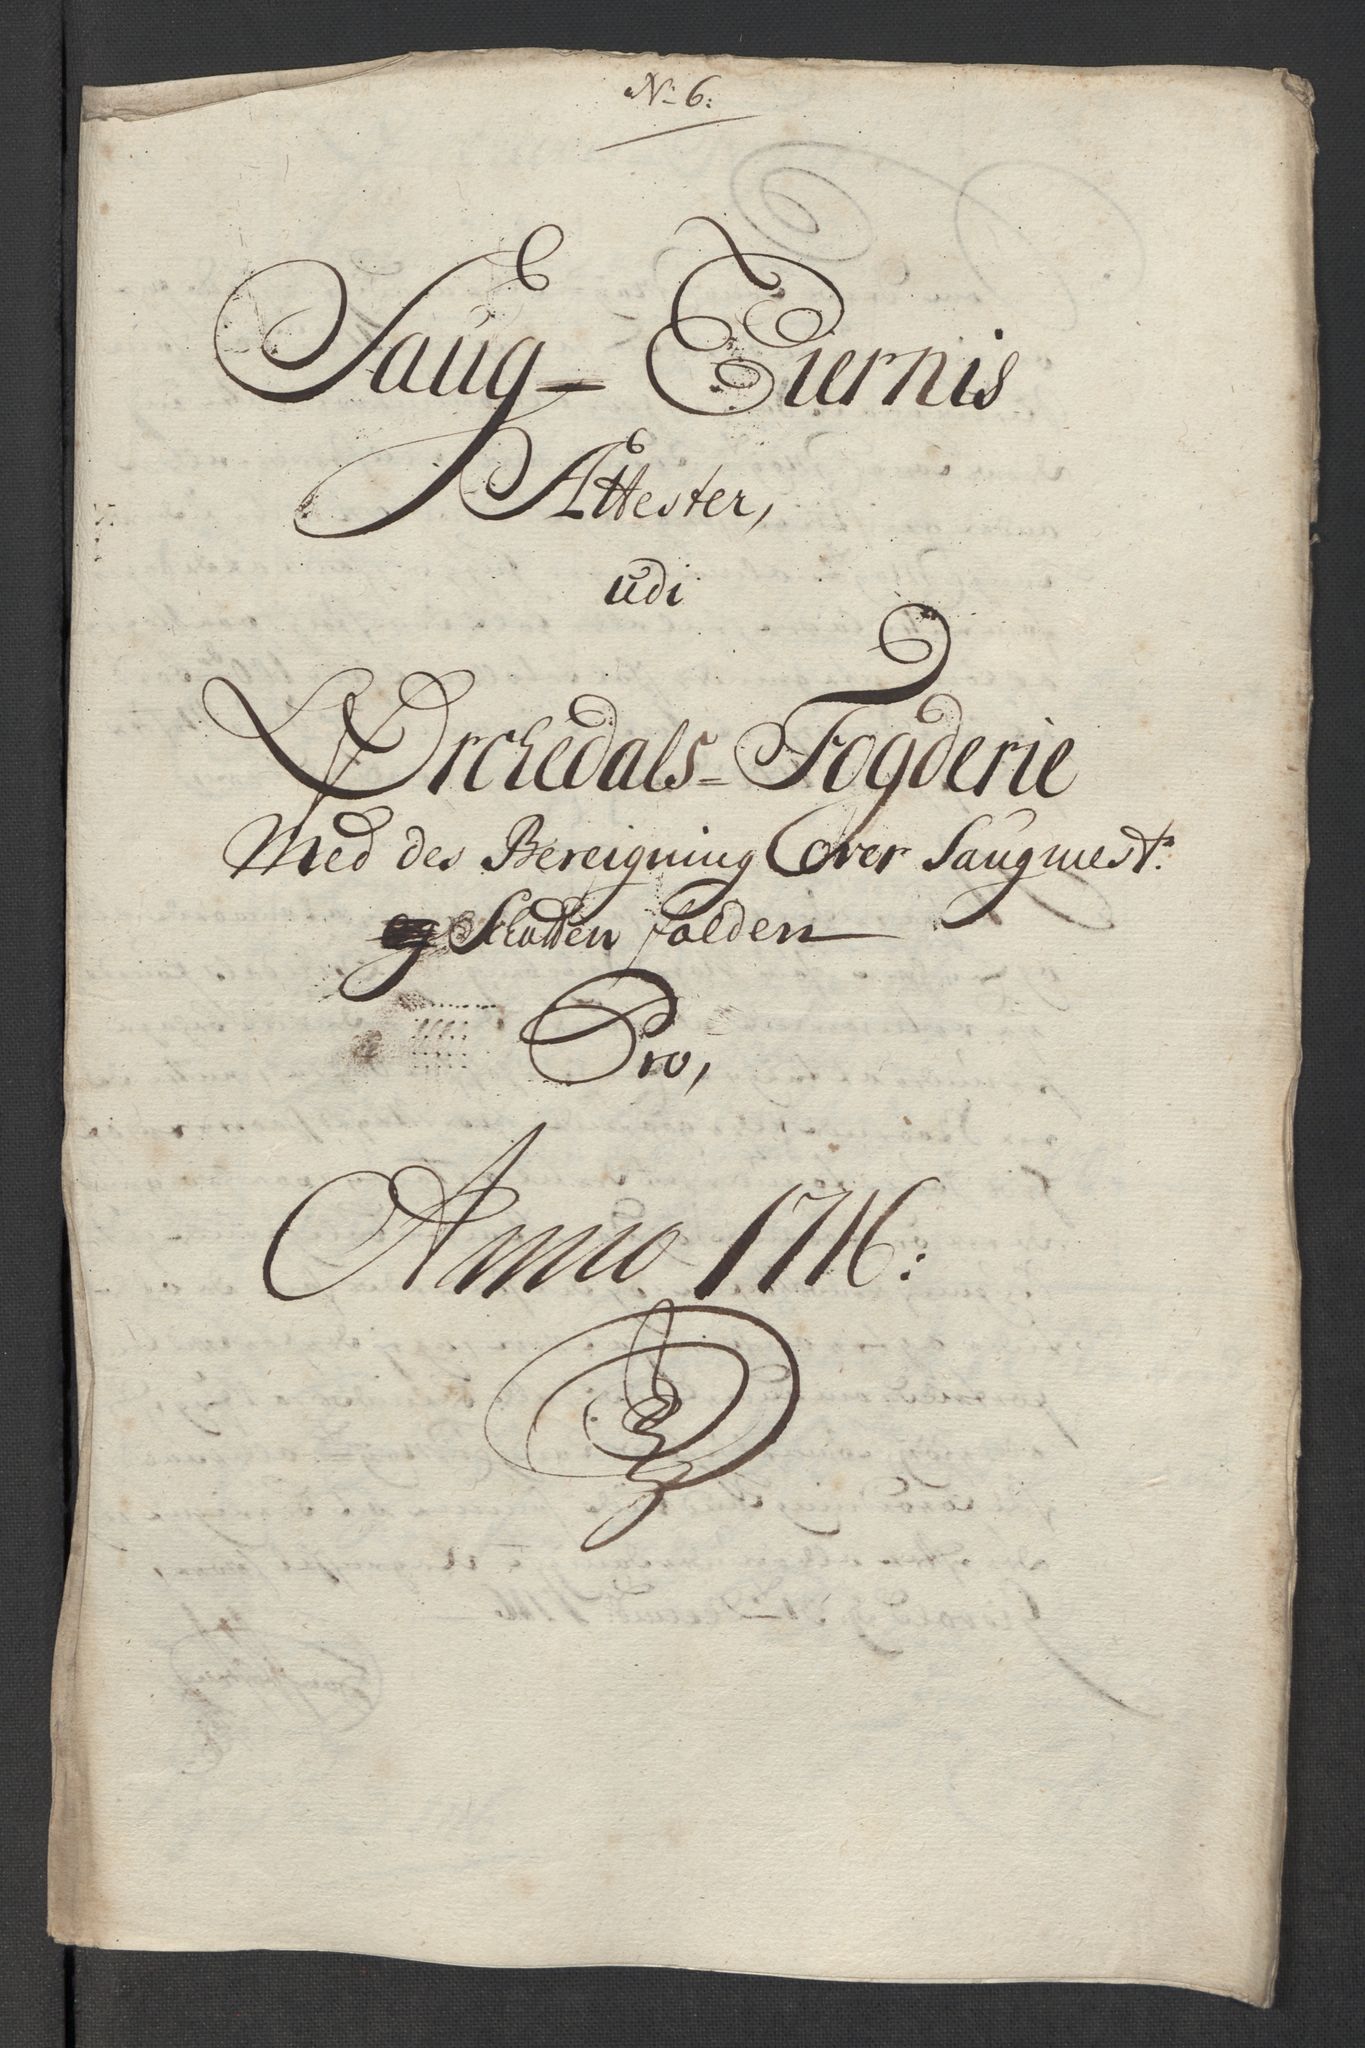 N: 6:
Saug- Eiernis
Attester,
udi
Orchedals- Fogderie
Med des Bereigning Over Saugmest:
og Schatten
Pro,
Anno 1716: